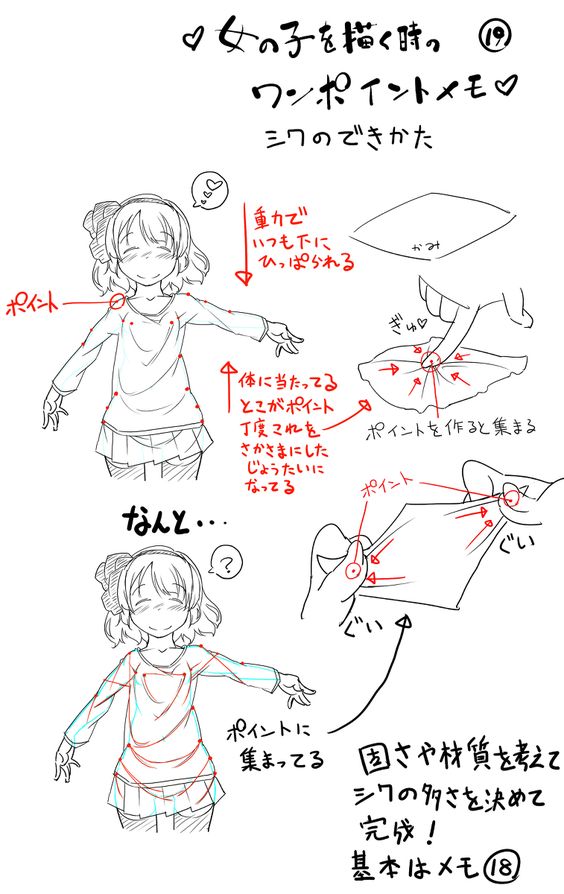 ♡女の子を描く時の ⑲
ワンポイントメモ♡
シワのできかた
重力で
いつも下に
ひっぱられる
かみ
ポイント
ぎゅ♡
体に当たってる
とこがポイント
丁度これを
さかさまにした
じょうたいに
なってる
ポイントを作ると集まる
ポイント
なんと・・・
ぐい
ぐい
?
ポイントに
集まってる
固さや材質を考えて
シワの多さを決めて
完成!
基本はメモ⑱